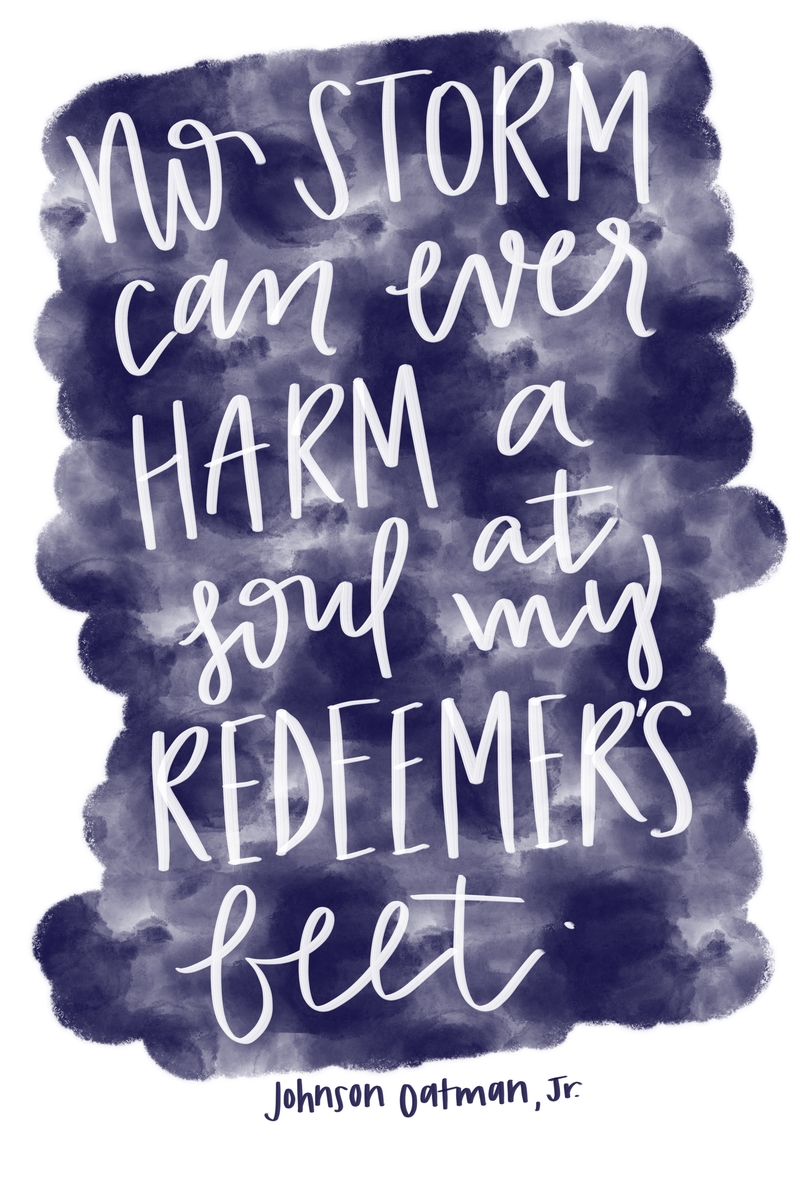 No STORM
can ever
HARM a
soul at my
REDEEMER'S
feet.
Johnson Oatman, Jr.